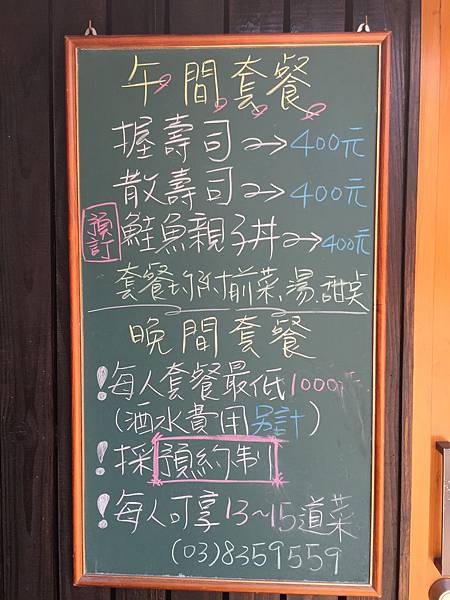 午間套餐
握壽司→400元
散壽司→400元
預訂 鮭魚親子丼→400元
套餐均附前菜、湯、甜点
晚間套餐
!每人套餐最低1000元
(酒水費用另計)
!採預約制
!每人可享13~15道菜
(03)8359559